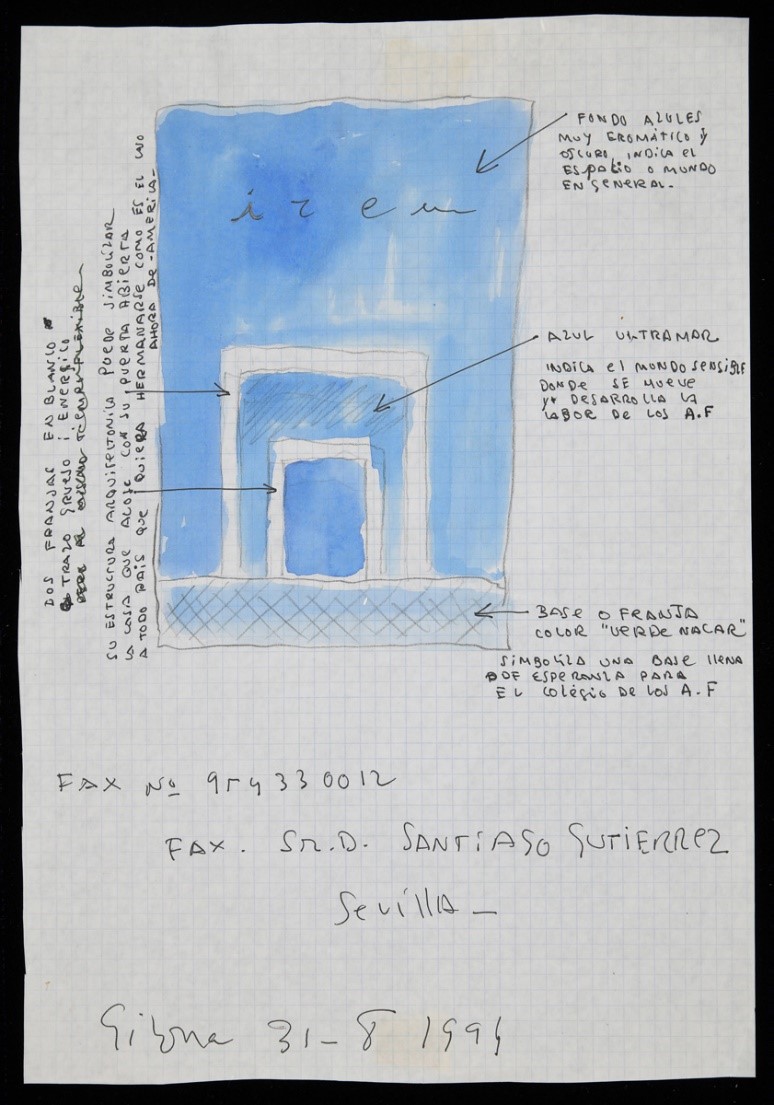 FONDO AZULES
MUY CROMÁTICO Y
OSCURO, INDICA el
ESPACIO O MUNDO
EN GENERAL.
AZUL ULTRAMAR
INDICA el MUNDO SENSIBLE
DONDE SE MUEVE
y DESARROLLA LA
LABOR DE LOS A.F
BASE O FRANJA
COLOR "VERDE NACAR"
SIMBOLIZA UNA BASE llENA
DE ESPERANZA PARA
EL COLÉGIO DE LOS A.F
DOS FRANJAS EN BLANCO
TRAZO GRUESO i ENERGICO
SU ESTRUCTURA ARQUITECTONICA PUEDE SIMBOLIZAR
LA CASA QUE ACOJE CON SU PUERTA ABIERTA
A TODO PAIS QUE QUIERA HERMANARSE COMO ES EL CASO
AHORA DE -AMERICA-
FAX Nº 954330012
FAX. SR.D. SANTIAGO GUTIERREZ
Sevilla -
Girona 31-8 1994